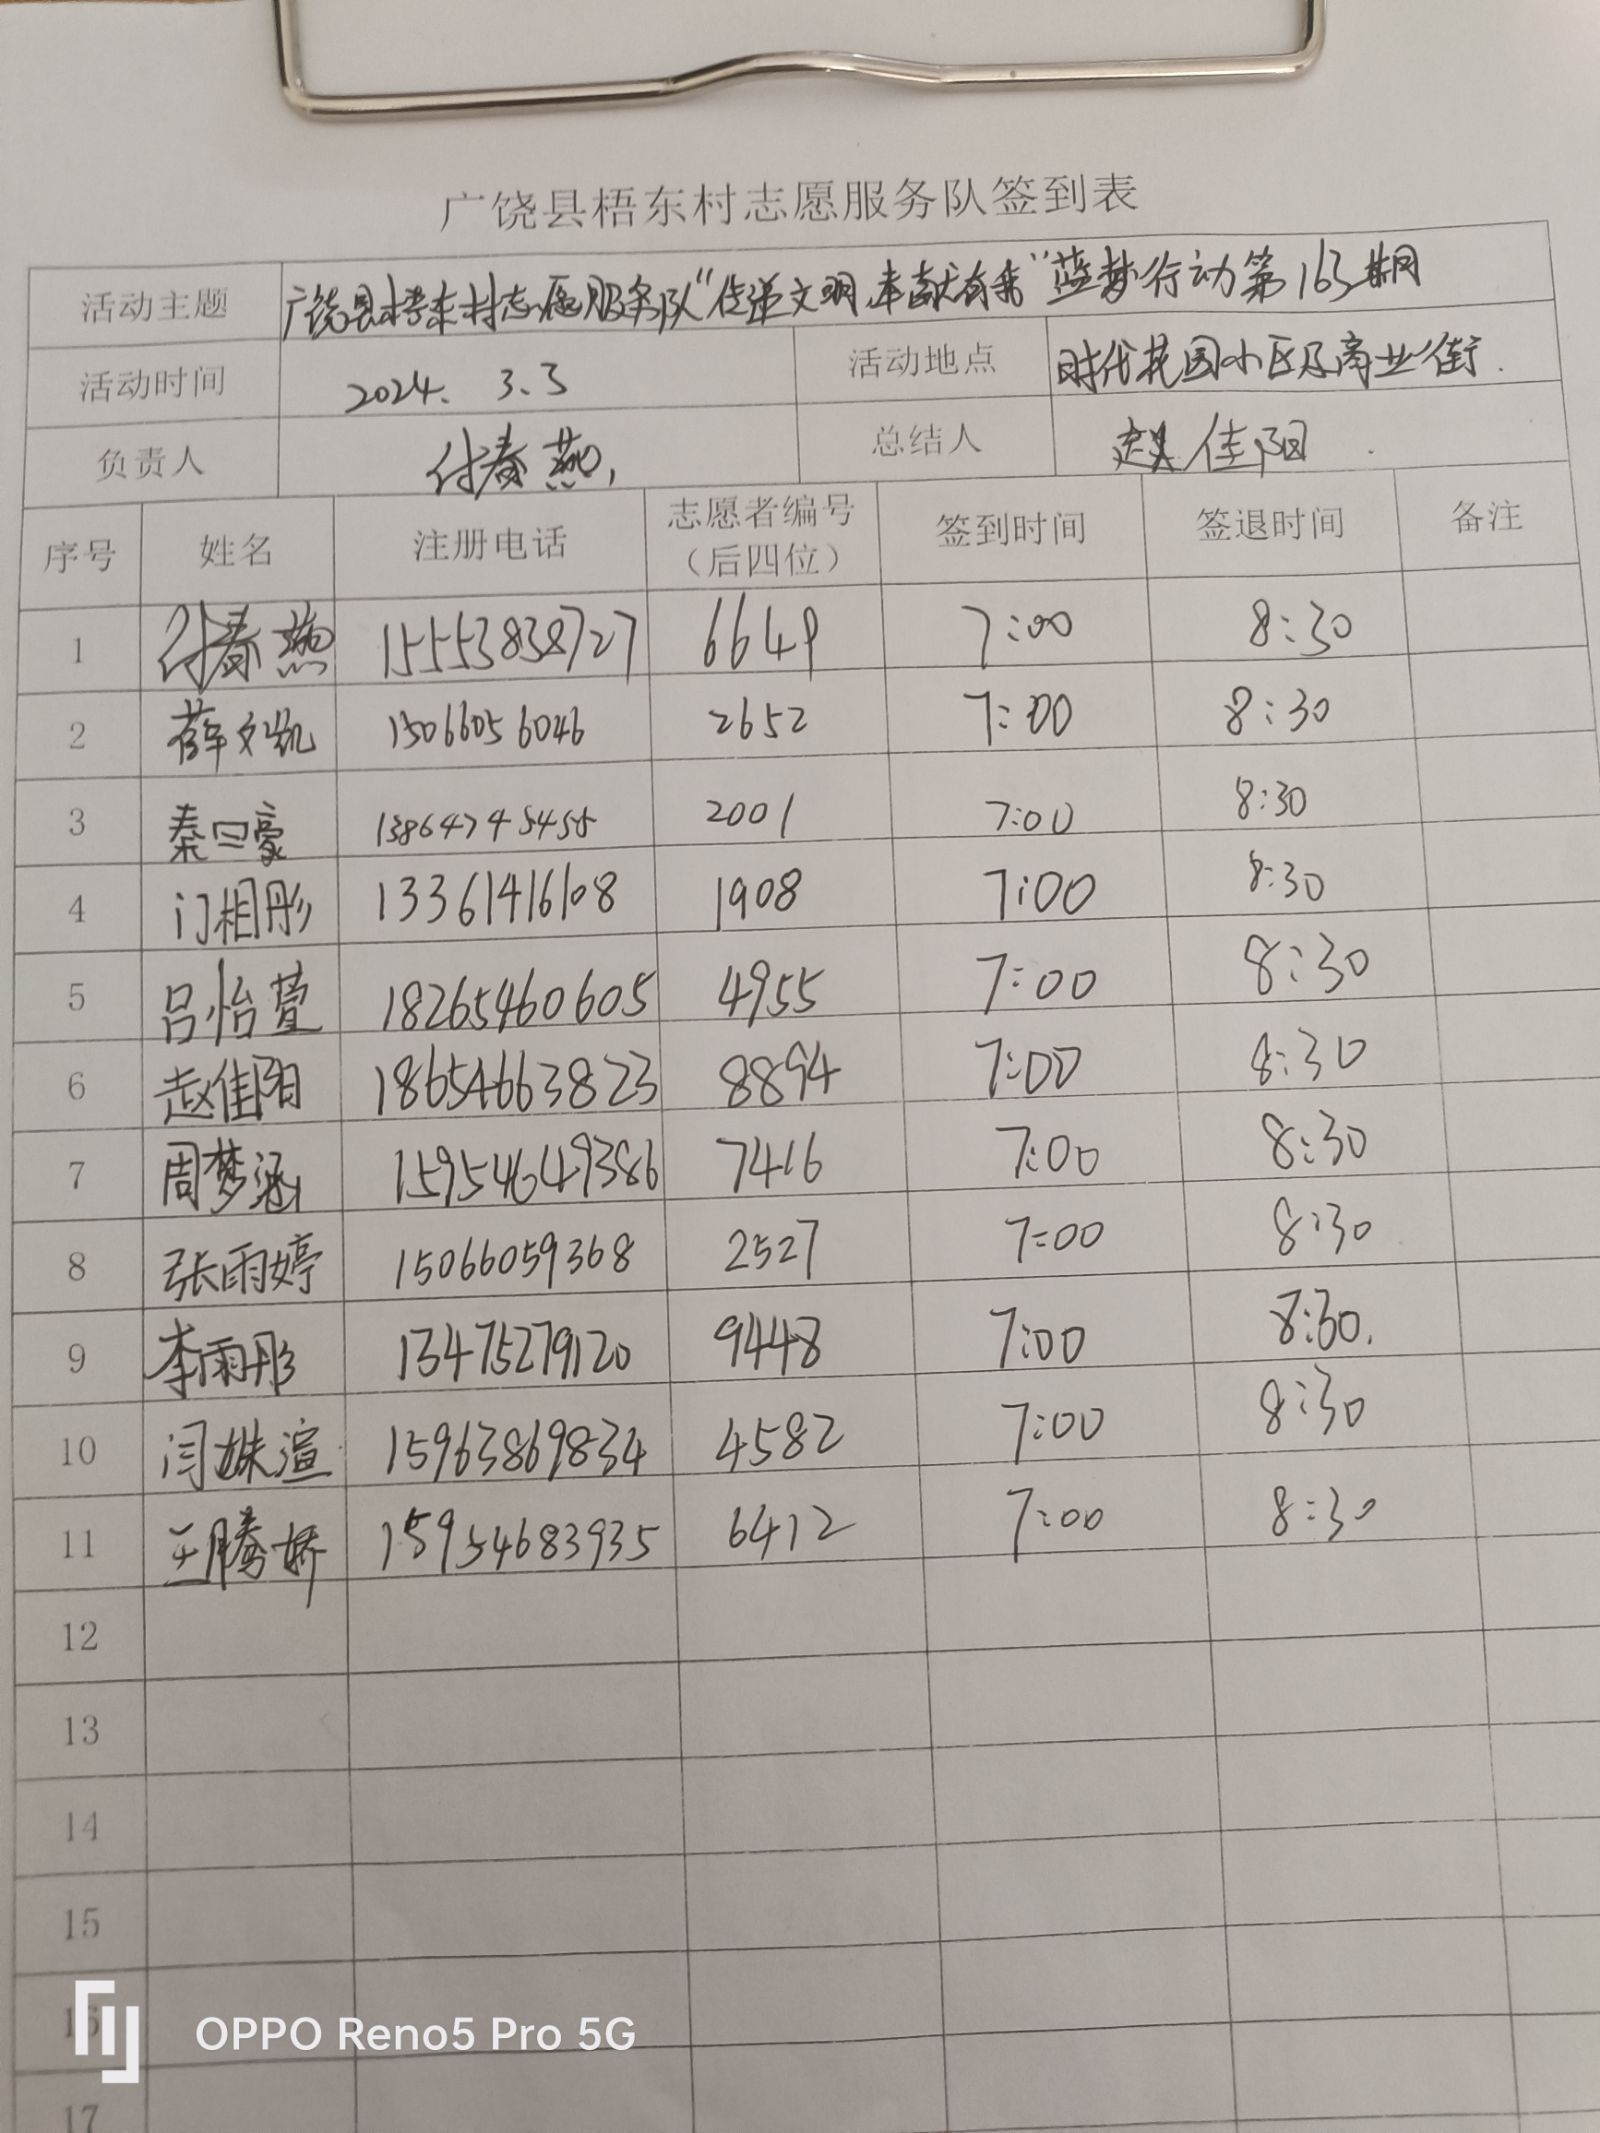 广饶县梧东村志愿服务队签到表
活动主题 广饶县梧东村志愿服务队“传递文明,奉献有我”蓝梦行动第163期
活动时间 2024. 3.3 活动地点 时代花园小区及商业街.
负责人 付春燕, 总结人 赵佳阳.
序号 姓名 注册电话 志愿者编号（后四位） 签到时间 签退时间 备注
1 付春燕 15553838727 6649 7:00 8:30
2 薛文凯 15066056046 2652 7:00 8:30
3 秦豪 13864745455 2001 7:00 8:30
4 门相彤 13361416108 1908 7:00 8:30
5 吕怡萱 18265460605 4955 7:00 8:30
6 赵佳阳 18654663823 8894 7:00 8:30
7 周梦涵 15954649386 7416 7:00 8:30
8 张雨婷 15066059368 2527 7:00 8:30
9 李雨彤 13475279120 9448 7:00 8:30.
10 闫姝渲 15963869834 4582 7:00 8:30
11 王腾娇 15954683935 6412 7:00 8:30
12
13
14
15
16
17
OPPO Reno5 Pro 5G